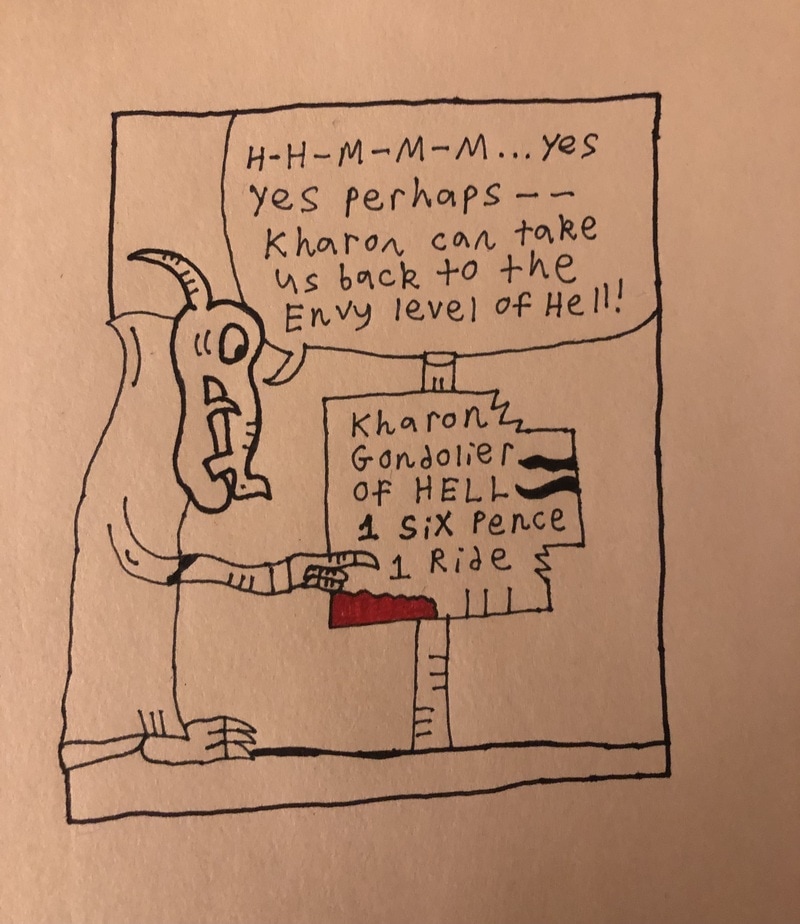 H-H-M-M-M...yes
yes perhaps--
Kharon can take
us back to the
Envy level of Hell!
Kharon
Gondolier
OF HELL
1 Six Pence
1 Ride